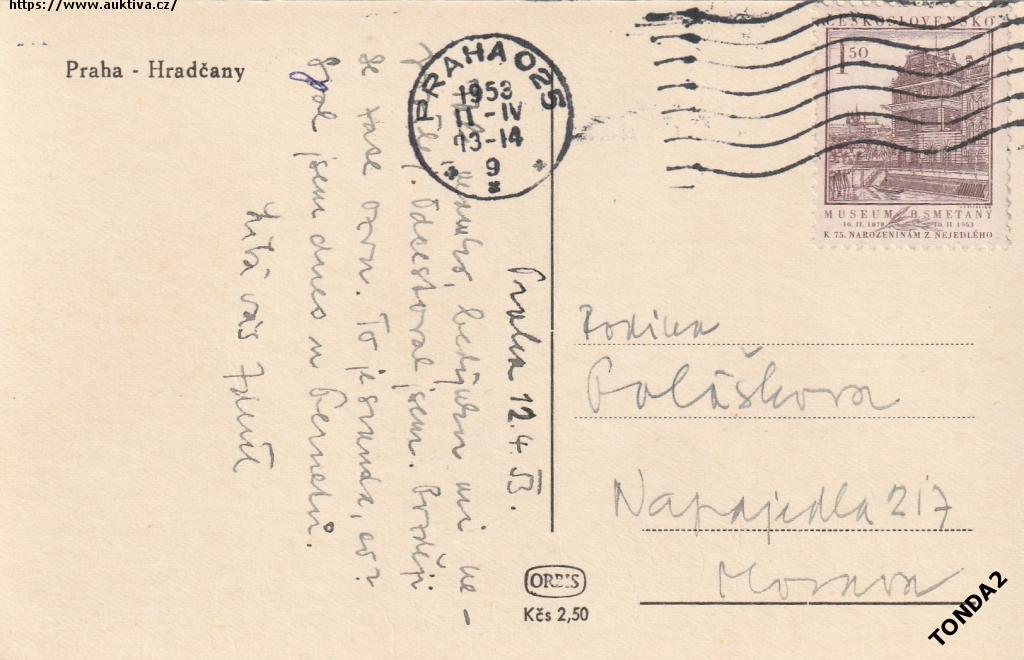 https://www.auktiva.cz/
Praha - Hradčany
PRAHA 025
1953
11-IV
13-14
9
ČESKOSLOVENSKO
1 50
MUSEUM B. SMETANY
10. II. 1878 10. II. 1953
K 75. NAROZENINÁM Z. NEJEDLÉHO
Praha 12.4.53.
mi ne-
Odcestoval jsem. Později
se zase ozvu. To je sranda, co?
Spal jsem dnes u Pernetů.
Líbá vás
Rodina
Poláškova
Napajedla 217
Morava
ORBIS
Kčs 2,50
TONDA2